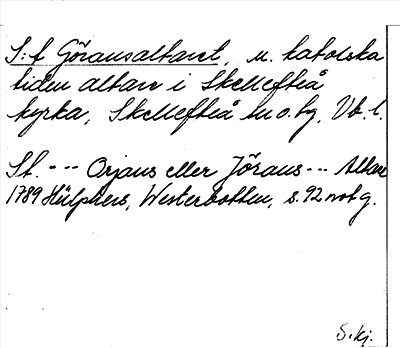 S:t Göransaltaret, u. katolska
tiden altare i Skellefteå
kyrka, Skellefteå hd o. lg, Vb. l.
St. --- Orjans eller Jörans --- Altare
1789 Hülphers, Westerbotten, s. 92 not g.
S. kj.